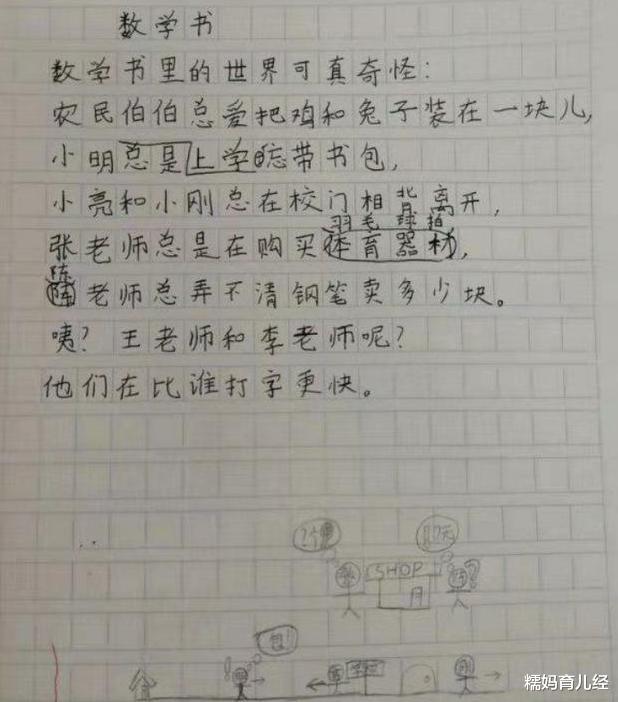 数学书
数学书里的世界可真奇怪:
农民伯伯总爱把鸡和兔子装在一块儿,
小明总是上学忘带书包,
小亮和小刚总在校门相背离开,
羽毛球拍
张老师总是在购买体育器材,
陈
老师总弄不清钢笔卖多少块。
咦?王老师和李老师呢?
他们在比谁打字更快。
SHOP
包!
糯妈育儿经